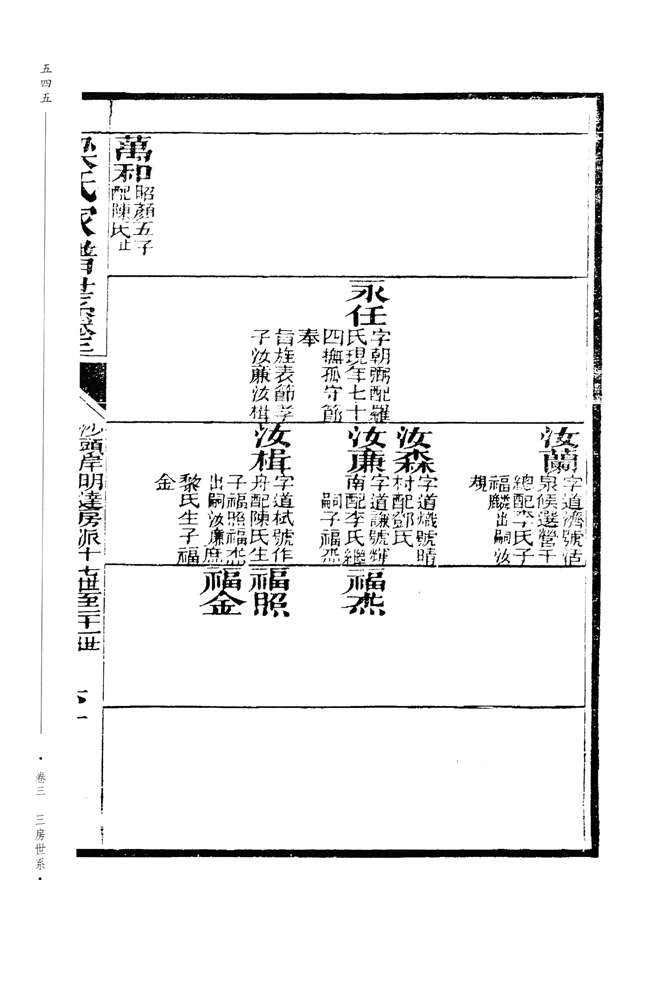 汝蘭
字道濟號活
泉候選營千
總配李氏子
福麟出嗣汝
槻
汝森
字道熾號晴
村配鄧氏
永任
字朝弼配羅
氏現年七十
四撫孤守節
奉
旨旌表節孝
子汝廉汝楫
汝廉
字道謙號輝
南配李氏繼
嗣子福杰
福杰
汝楫
字道栻號作
舟配陳氏生
子福照福杰
出嗣汝廉庶
黎氏生子福
金
福照
福金
萬和
昭顏五子
配陳氏止
氏家譜世系卷三
沙頭岸明達房派十七世至二十一世
五四五
· 卷三 三房世系 ·